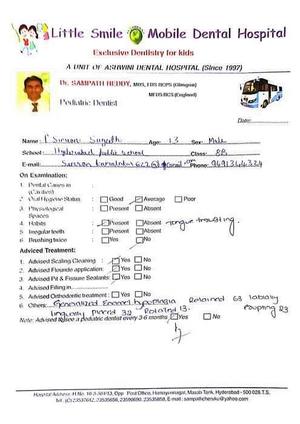 Little Smile Mobile Dental Hospital
Exclusive Dentistry for kids
A UNIT OF ASHWINI DENTAL HOSPITAL (Since 1997)
Dr. SAMPATH REDDY, MDS, FDS RCPS (Glasgow)
MFDS RCS (England)
Pediatric Dentist
Date:
Name: Age: 13 Sex: Male
School: Hyderabad public school Class: 8B
E-mail: Phone:
On Examination:
1. Dental Caries in
(Cavities)
2. Oral Hygiene Status Good Average Poor
3. Physiological Present Absent
Spaces
4. Habits Present Absent tongue thrusting.
5. Irregular teeth Present Absent
6. Brushing twice Yes No
Adviced Treatment:
1. Adviced Scaling Cleaning Yes No
2. Adviced Flouride application: Yes No
3. Adviced Pit & Fissure Sealants: Yes No
4. Adviced Filling in
5. Adviced Orthodontic treatment: Yes No
6. Others: Generalized Enamel hypoplasia Retained 63 labially
lingually placed 32 Rotated 13. erupting 23
Note: Adviced to see a pediatric dentist every 3-6 months Yes No
Hospital Address: Opp. Post Office, Humayunnagar, Masab Tank, Hyderabad - 500 028 T.S.